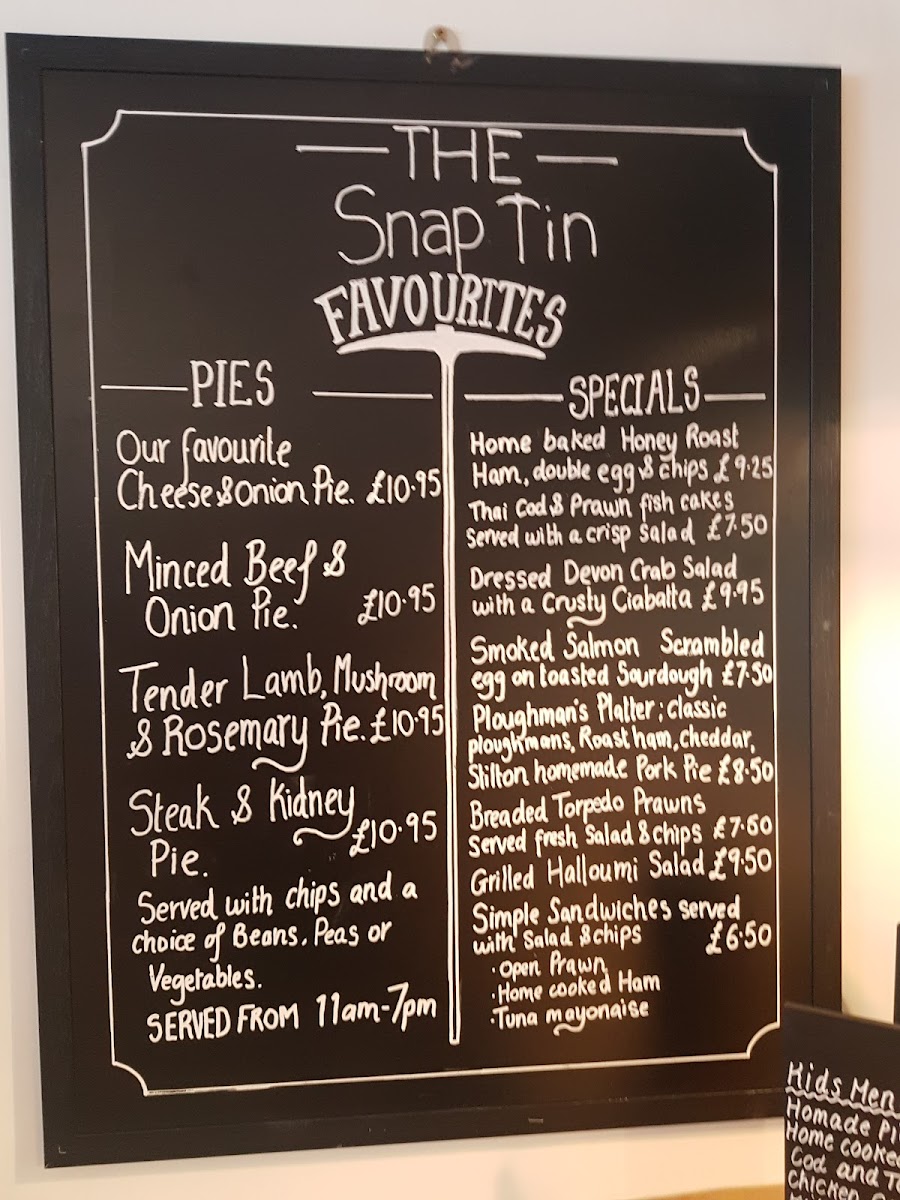 THE
Snap Tin
FAVOURITES
PIES
Our favourite
Cheese & Onion Pie. £10.95
Minced Beef &
Onion Pie. £10.95
Tender Lamb, Mushroom
& Rosemary Pie. £10.95
Steak & Kidney
Pie. £10.95
Served with chips and a
choice of Beans. Peas or
Vegetables.
SERVED FROM 11am-7pm
SPECIALS
Home baked Honey Roast
Ham, double egg & chips £9.25
Thai Cod & Prawn fish cakes
Served with a crisp Salad £7.50
Dressed Devon Crab Salad
with a Crusty Ciabatta £9.95
Smoked Salmon Scrambled
egg on toasted Sourdough £7.50
Ploughman's Platter; classic
ploughmans, Roast ham, cheddar,
Stilton homemade Pork Pie £8.50
Breaded Torpedo Prawns
Served fresh Salad & chips £7.60
Grilled Halloumi Salad £9.50
Simple Sandwiches served
with Salad & chips £6.50
· Open Prawn
· Home cooked Ham
· Tuna mayonaise
Kids Men
Homade Pi
Home cooked
Cod and
Chicken